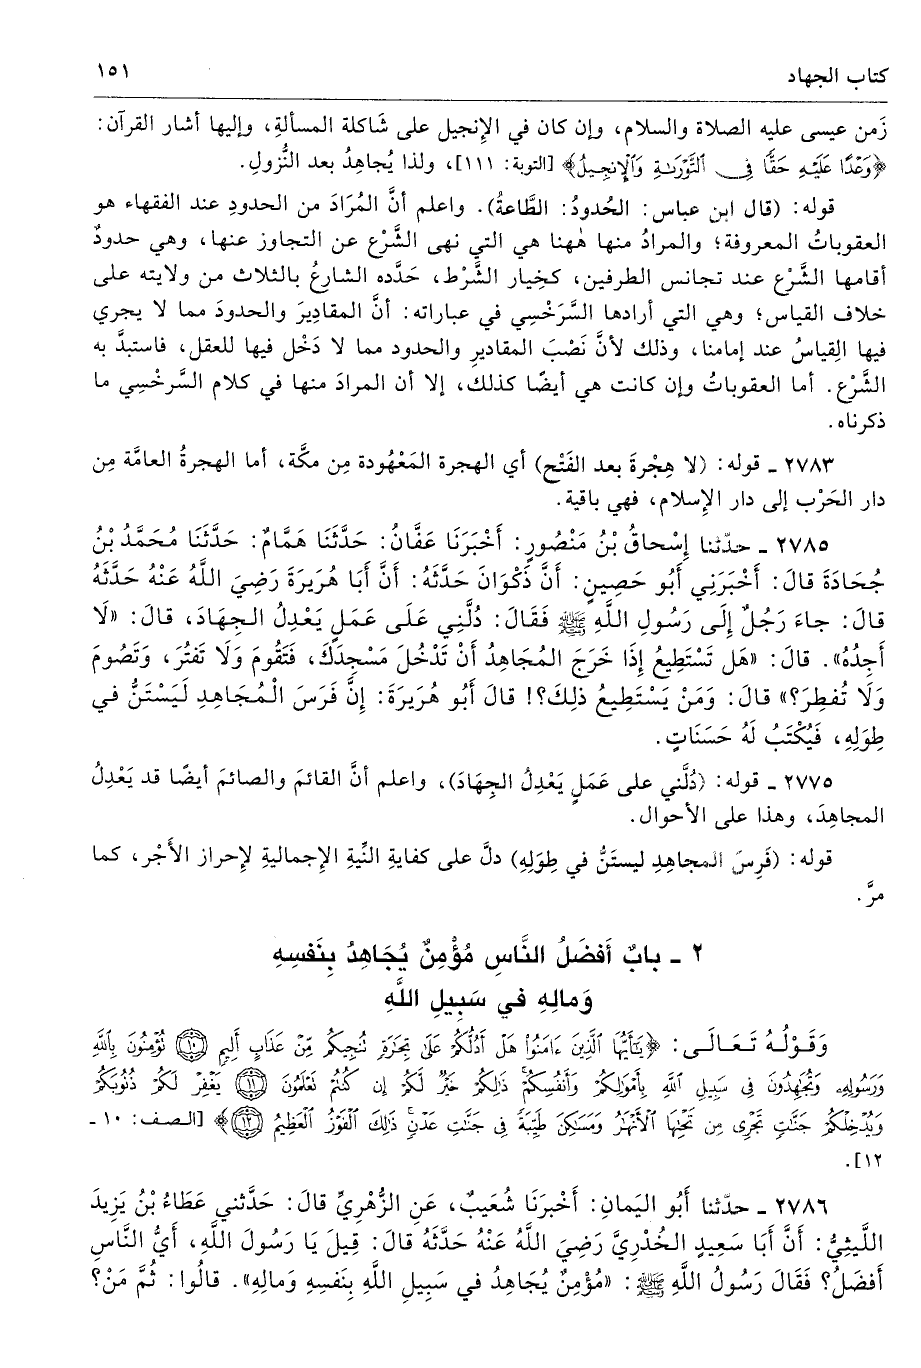 كتاب الجهاد ١٥١
زَمن عيسى عليه الصلاة والسلام، وإن كان في الإِنجيل على شَاكلة المسألةِ، وإليها أشار القرآن:
﴿وَعْدًا عَلَيْهِ حَقًّا فِى ٱلتَّوْرَىٰةِ وَٱلْإِنجِيلِ﴾ [التوبة: ١١١]، ولذا يُجاهِدُ بعد النُّزولِ.
قوله: (قال ابن عباس: الحُدودُ: الطَّاعةُ). واعلم أنَّ المُرَادَ من الحدودِ عند الفقهاء هو
العقوباتُ المعروفة؛ والمرادُ منها هٰهنا هي التي نهى الشَّرْع عن التجاوز عنها، وهي حدودٌ
أقامها الشَّرْع عند تجانس الطرفين، كخِيار الشَّرْط، حَدَّده الشارعُ بالثلاث من ولايته على
خلاف القياس؛ وهي التي أرادها السَّرَخْسِي في عباراته: أنَّ المقادِيرَ والحدودَ مما لا يجري
فيها القِياسُ عند إمامنا، وذلك لأنَّ نَصْبَ المقاديرِ والحدود مما لا دَخْل فيها للعقل، فاستبدَّ به
الشَّرْع. أما العقوباتُ وإن كانت هي أيضًا كذلك، إلا أن المرادَ منها في كلام السَّرخْسِي ما
ذكرناه.
٢٧٨٣ ـ قوله: (لا هِجْرةَ بعد الفَتْح) أي الهجرة المَعْهُودة مِن مكَّة، أما الهجرةُ العامَّة مِن
دار الحَرْب إلى دار الإِسلام، فهي باقية.
٢٧٨٥ ـ حدّثنا إِسْحاقُ بْنُ مَنْصُورٍ: أَخْبَرَنَا عَفَّانُ: حَدَّثَنَا هَمَّامٌ: حَدَّثَنَا مُحَمَّدُ بْنُ
جُحَادَةَ قالَ: أَخْبَرَنِي أَبُو حَصِينٍ: أَنَّ ذَكْوَانَ حَدَّثَهُ: أَنَّ أَبَا هُرَيرَةَ رَضِيَ اللَّهُ عَنْهُ حَدَّثَهُ
قالَ: جاءَ رَجُلٌ إِلَى رَسُولِ اللَّهِ ﷺ فَقَالَ: دُلَّنِي عَلَى عَمَلٍ يَعْدِلُ الجِهَادَ، قالَ: «لَا
أَجِدُهُ». قالَ: «هَل تَسْتَطِيعُ إِذَا خَرَجَ المُجَاهِدُ أَنْ تَدْخُلَ مَسْجِدَكَ، فَتَقُومَ وَلَا تَفتُرَ، وَتَصُومَ
وَلَا تُفطِرَ؟» قالَ: وَمَنْ يَسْتَطِيعُ ذلِكَ؟! قالَ أَبُو هُرَيرَةَ: إِنَّ فَرَسَ الْمُجَاهِدِ لَيَسْتَنُّ في
طِوَلِهِ، فَيُكْتَبُ لَهُ حَسَنَاتٍ.
٢٧٧٥ ـ قوله: (دُلَّني على عَمَلٍ يَعْدِلُ الجِهَادَ)، واعلم أنَّ القائمَ والصائمَ أيضًا قد يَعْدِلُ
المجاهِدَ، وهذا على الأحوال.
قوله: (فَرسَ المجاهدِ ليستَنُّ في طِوَلِهِ) دلَّ على كفايةِ النِّيةِ الإِجماليةِ لإِحراز الأَجْر، كما
مرَّ.
٢ ـ بابٌ أَفضَلُ النَّاسِ مُؤْمِنٌ يُجَاهِدُ بِنَفسِهِ
وَمالِهِ في سَبِيلِ اللَّهِ
وَقَوْلُهُ تَعَالَى: ﴿يَٰٓأَيُّهَا ٱلَّذِينَ ءَامَنُوا۟ هَلْ أَدُلُّكُمْ عَلَىٰ تِجَٰرَةٍ تُنجِيكُم مِّنْ عَذَابٍ أَلِيمٍ ﴿١٠﴾ تُؤْمِنُونَ بِٱللَّهِ
وَرَسُولِهِۦ وَتُجَٰهِدُونَ فِى سَبِيلِ ٱللَّهِ بِأَمْوَٰلِكُمْ وَأَنفُسِكُمْ ۚ ذَٰلِكُمْ خَيْرٌ لَّكُمْ إِن كُنتُمْ تَعْلَمُونَ ﴿١١﴾ يَغْفِرْ لَكُمْ ذُنُوبَكُمْ
وَيُدْخِلْكُمْ جَنَّٰتٍ تَجْرِى مِن تَحْتِهَا ٱلْأَنْهَٰرُ وَمَسَٰكِنَ طَيِّبَةً فِى جَنَّٰتِ عَدْنٍ ۚ ذَٰلِكَ ٱلْفَوْزُ ٱلْعَظِيمُ ﴿١٢﴾﴾ [الصف: ١٠ ـ
١٢].
٢٧٨٦ ـ حدّثنا أَبُو اليَمانِ: أَخْبَرَنَا شُعَيبٌ، عَنِ الزُّهْرِيِّ قالَ: حَدَّثني عَطَاءُ بْنُ يَزِيدَ
اللَّيثِيُّ: أَنَّ أَبَا سَعِيدٍ الخُدْرِيَّ رَضِيَ اللَّهُ عَنْهُ حَدَّثَهُ قالَ: قِيلَ يَا رَسُولَ اللَّهِ، أَيُّ النَّاسِ
أَفضَلُ؟ فَقَالَ رَسُولُ اللَّهِ ﷺ: «مُؤْمِنٌ يُجَاهِدُ في سَبِيلِ اللَّهِ بِنَفسِهِ وَمالِهِ». قالُوا: ثُمَّ مَنْ؟